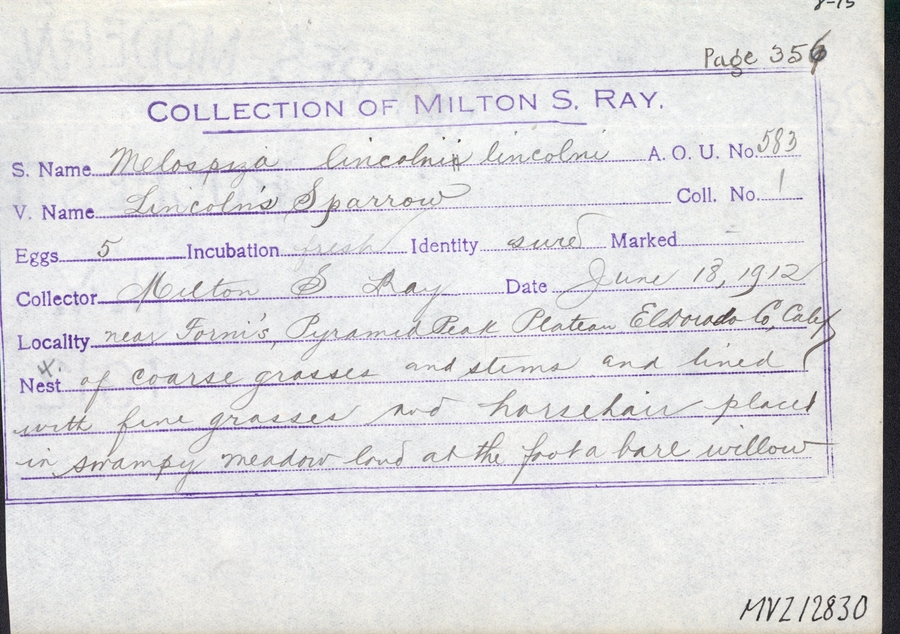 8-15
Page 356
COLLECTION OF MILTON S. RAY.
S. Name Melospiza lincolnii lincolni A. O. U. No. 583
V. Name Lincoln's Sparrow Coll. No. 1
Eggs 5 Incubation fresh Identity sure Marked
Collector Milton S Ray Date June 18, 1912
Locality near Forni's, Pyramid Peak Plateau El Dorado Co, Calif
Nest x. of coarse grasses and stems and lined
with fine grasses and horsehair placed
in swampy meadow land at the foot a bare willow
MVZ 12830